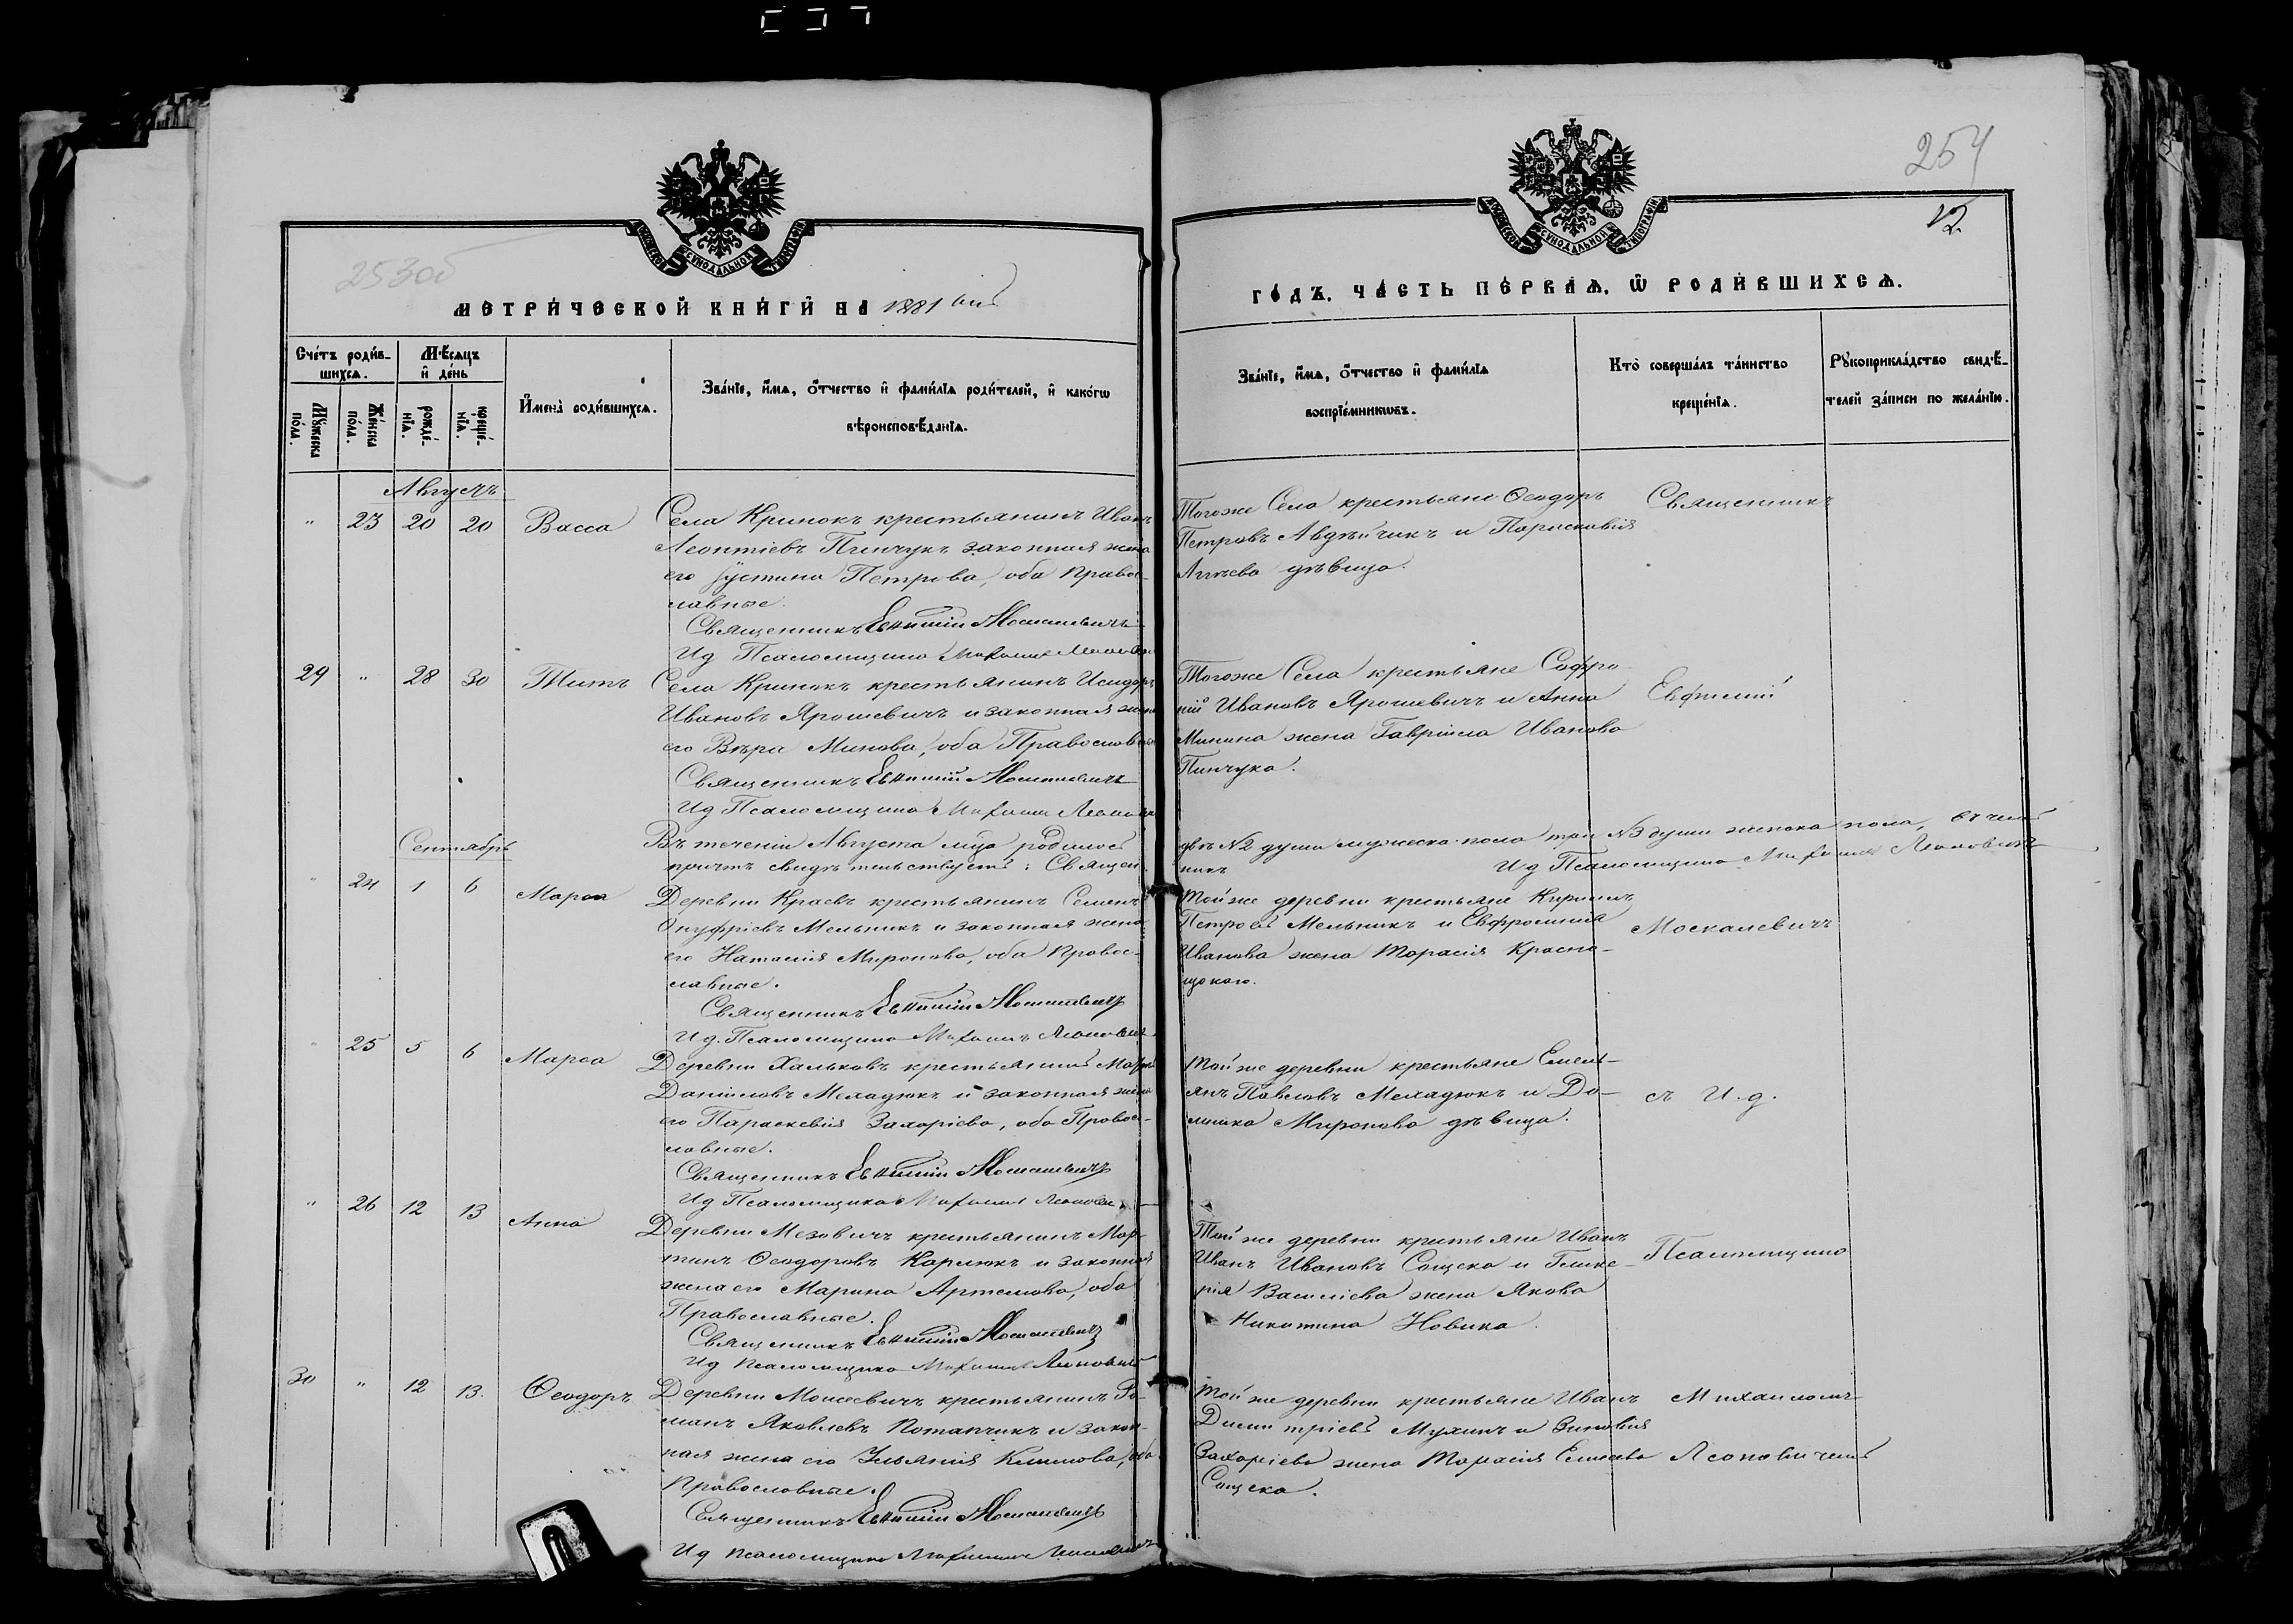 254
12
253об
МОСКОВСКОЙ СѴНОДАЛЬНОЙ ТИПОГРАФІИ
МОСКОВСКОЙ СѴНОДАЛЬНОЙ ТИПОГРАФІИ
МЕТРИ́ЧЕСКОЙ КНИ́ГИ НА 1881 ый
ГО́ДЪ, ЧА́СТЬ ПЕ́РВАѦ, Ѿ РОДИ́ВШИХСѦ.
Сче́тъ роди́в-
шихсѧ.
Мѣ́сѧцъ
и҆ де́нь
Мꙋ́жеска по́ла.
Же́нска по́ла.
рожде́-нїѧ.
креще́-нїѧ.
И҆мена̀ роди́вшихсѧ.
Зва́нїе, и҆́мѧ, ѻ҆́тчество и҆ фами́лїѧ роди́телей, и҆ како́гѡ
вѣроисповѣ́данїѧ.
Зва́нїе, и҆́мѧ, ѻ҆́тчество и҆ фами́лїѧ
воспрїе́мникѡвъ.
Кто̀ соверша́лъ та́инство
креще́нїѧ.
Рꙋкоприкла́дство свидѣ́-
телей за́писи по жела́нїю.
Августъ
" 23 20 20 Васса
Села Кринокъ крестьянинъ Иванъ
Леонтіевъ Пинчукъ законная жена
его Іустина Петрова, оба Правос-
лавные.
Священникъ Евфимій Москалевичъ
Ид Псаломщика Михаилъ Леонович
Тогоже Села крестьяне Ѳеодоръ
Петровъ Авдѣйчикъ и Параскевія
дѣвица.
Священникъ
29 " 28 30 Титъ
Села Кринокъ крестьянинъ Исидоръ
Ивановъ Ярошевичъ и законная жена
его Вѣра Минова, оба Православные
Священникъ Евфимій Москалевичъ
Ид Псаломщика Михаилъ Леонович
Тогоже Села крестьяне Софро-
ній Ивановъ Ярошевичъ и Анна
Минина жена Гавріила Иванова
Пинчука.
Евфимій
Въ теченіи Августа мца родилось
двѣ №2 души мужеска пола три №3 души женска пола, въ чемъ
причтъ свидѣтельствуетъ: Священ-
никъ
Ид Псаломщика Михаилъ Леоновичъ
Сентябрь
" 24 1 6 Марѳа
Деревни Краевъ крестьянинъ Семенъ
Онуфріевъ Мельникъ и законная жена
его Наталія Миронова, оба Правос-
лавные.
Священникъ Евфимій Москалевичъ
Ид. Псаломщика Михаилъ Леонович
Той же деревни крестьяне Кириллъ
Петровъ Мельникъ и Евфросинія
Иванова жена Тарасія Красно-
Москалевичъ
" 25 5 6 Марѳа
Деревни Хальковъ крестьянинъ
Даніиловъ Меладюкъ и законная жена
его Параскевія Захаріева, оба Правос-
лавные.
Священникъ Евфимій Москалевичъ
Ид Псаломщика Михаилъ Леонович
Той же деревни крестьяне Емель-
янъ Павловъ Меладюкъ и До-
мника Миронова дѣвица.
съ И. д.
" 26 12 13 Анна
Деревни Мезовичъ крестьянинъ Мар-
тинъ Ѳеодоровъ Карлюкъ и законная
жена его Марина Артемова, оба
Православные.
Священникъ Евфимій Москалевичъ
Ид Псаломщика Михаилъ Леонович
Той же деревни крестьяне Иванъ
Иванъ Ивановъ Сощека и Глике-
рія Василіева жена Якова
Никитина Новика.
Псаломщика
30 " 12 13. Ѳеодоръ
Деревни Моисеевичъ крестьянинъ Ро-
манъ Яковлевъ Потапчикъ и закон-
ная жена его Ульянія Климова, оба
Православные.
Священникъ Евфимій Москалевичъ
Ид Псаломщика Михаилъ Леоновичъ
Той же деревни крестьяне Иванъ
Димитріевъ Мухинъ и Зиновія
Захаріева жена Тарасія Елисеева
Сощека.
Михаиломъ
Леоновичемъ